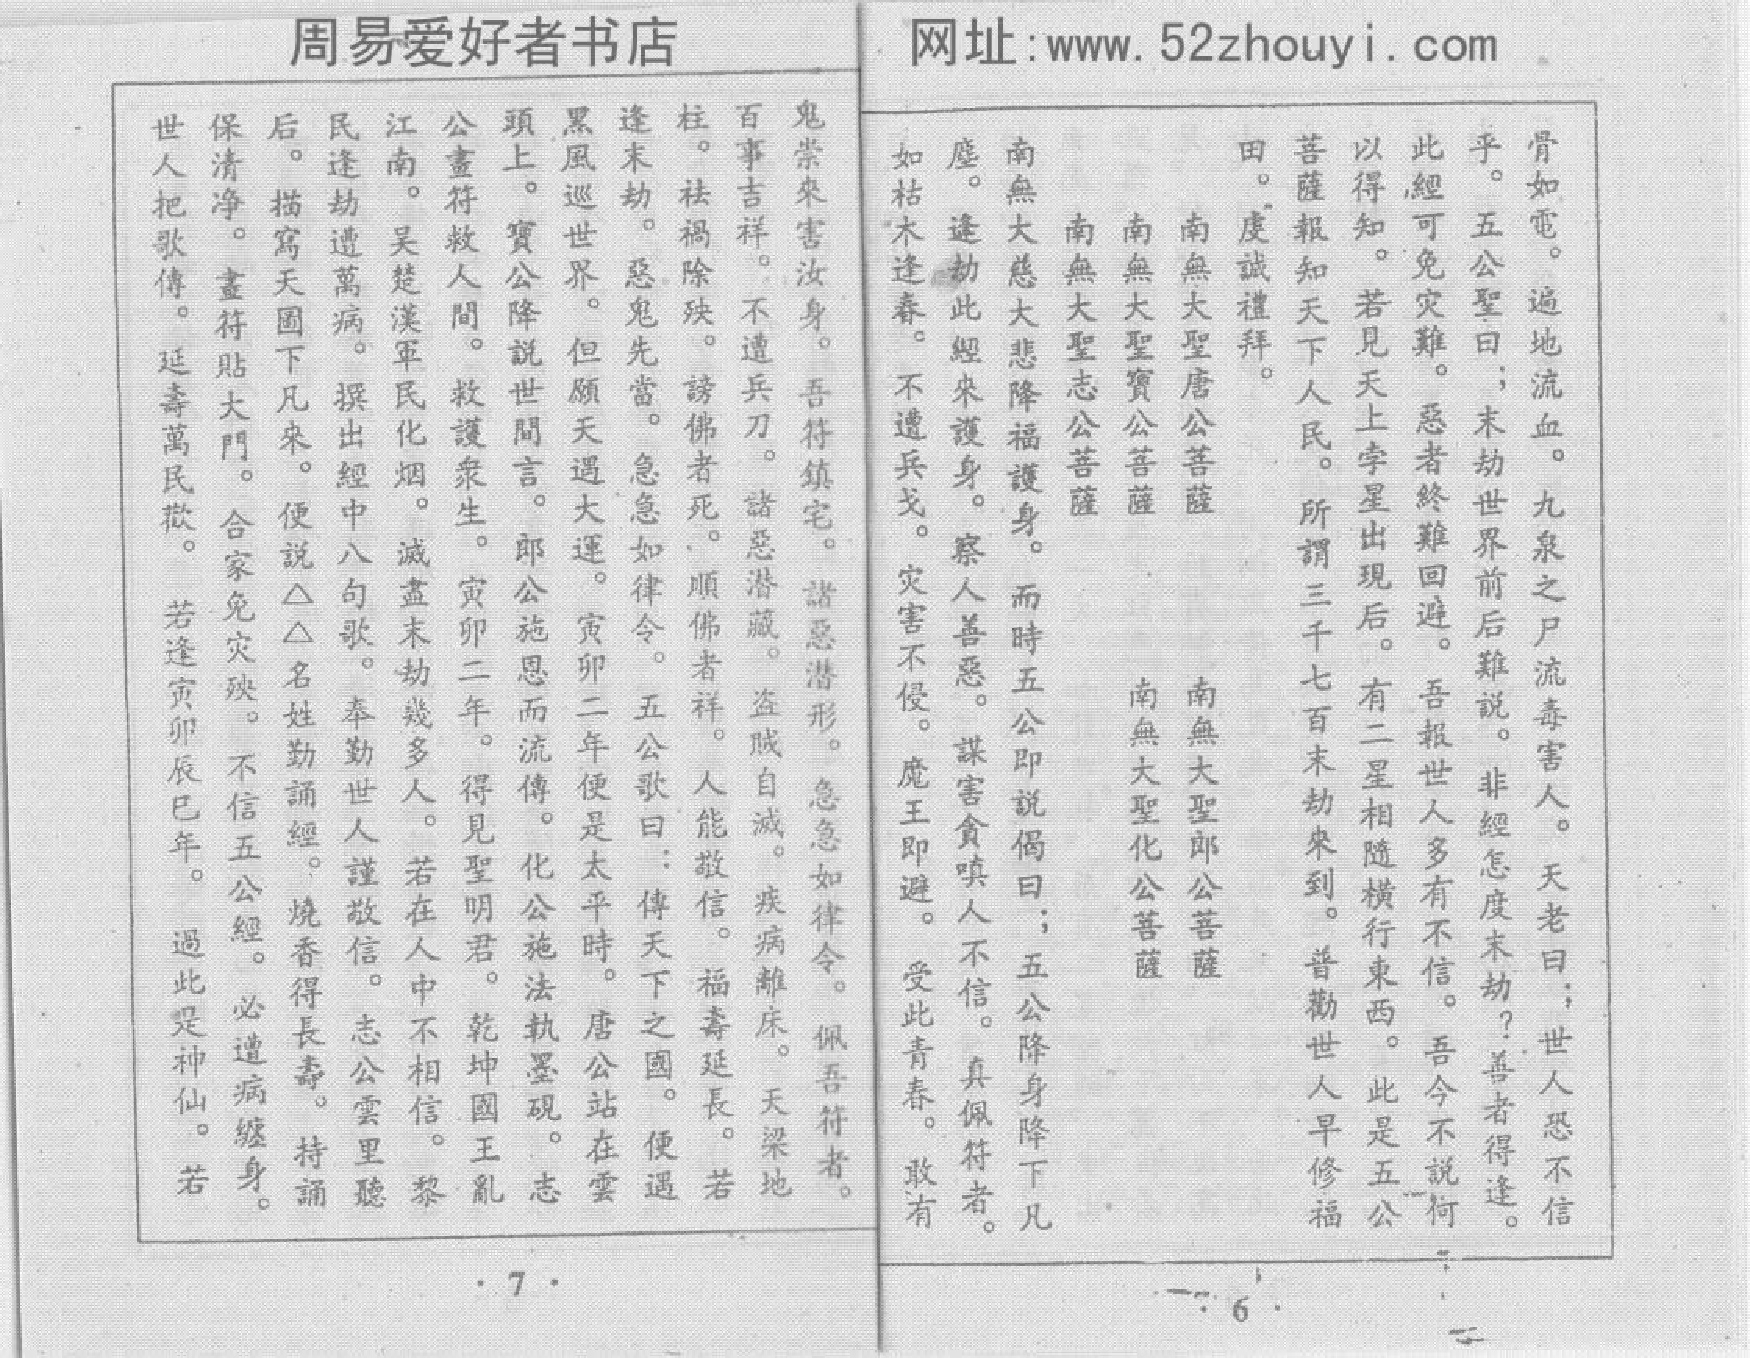 周易爱好者书店
网址:www.52zhouyi.com
骨如電。遍地流血。九泉之尸流毒害人。天老曰；世人恐不信
乎。五公聖曰；末劫世界前后難説。非經怎度末劫？善者得逢。
此經可免灾難。惡者終難回避。吾報世人多有不信。吾今不説何
以得知。若見天上孛星出現后。有二星相隨横行東西。此是五公
菩薩報知天下人民。所謂三千七百末劫來到。普勸世人早修福
田。虔誠禮拜。
南無大聖唐公菩薩　南無大聖郎公菩薩
南無大聖寶公菩薩　南無大聖化公菩薩
南無大聖志公菩薩
南無大慈大悲降福護身。而時五公即説偈曰；五公降身降下凡
塵。逢劫此經來護身。察人善惡。謀害貪嗔人不信。真佩符者。
如枯木逢春。不遭兵戈。灾害不侵。魔王即避。受此青春。敢有
鬼祟來害汝身。吾符鎮宅。諸惡潜形。急急如律令。佩吾符者。
百事吉祥。不遭兵刀。諸惡潜藏。盗賊自滅。疾病離床。天梁地
柱。祛禍除殃。謗佛者死。順佛者祥。人能敬信。福壽延長。若
逢末劫。惡鬼先當。急急如律令。五公歌曰：傳天下之國。便遇
黑風巡世界。但願天遇大運。寅卯二年便是太平時。唐公站在雲
頭上。寶公降説世間言。郎公施恩而流傳。化公施法執墨硯。志
公畫符救人間。救護衆生。寅卯二年。得見聖明君。乾坤國王亂
江南。吴楚漢軍民化烟。滅盡末劫幾多人。若在人中不相信。黎
民逢劫遭萬病。撰出經中八句歌。奉勤世人謹敬信。志公雲里聽
后。描寫天圖下凡來。便説△△名姓勤誦經。燒香得長壽。持誦
保清净。畫符貼大門。合家免灾殃。不信五公經。必遭病纏身。
世人把歌傳。延壽萬民歡。若逢寅卯辰巳年。過此是神仙。若
·7·
·6·